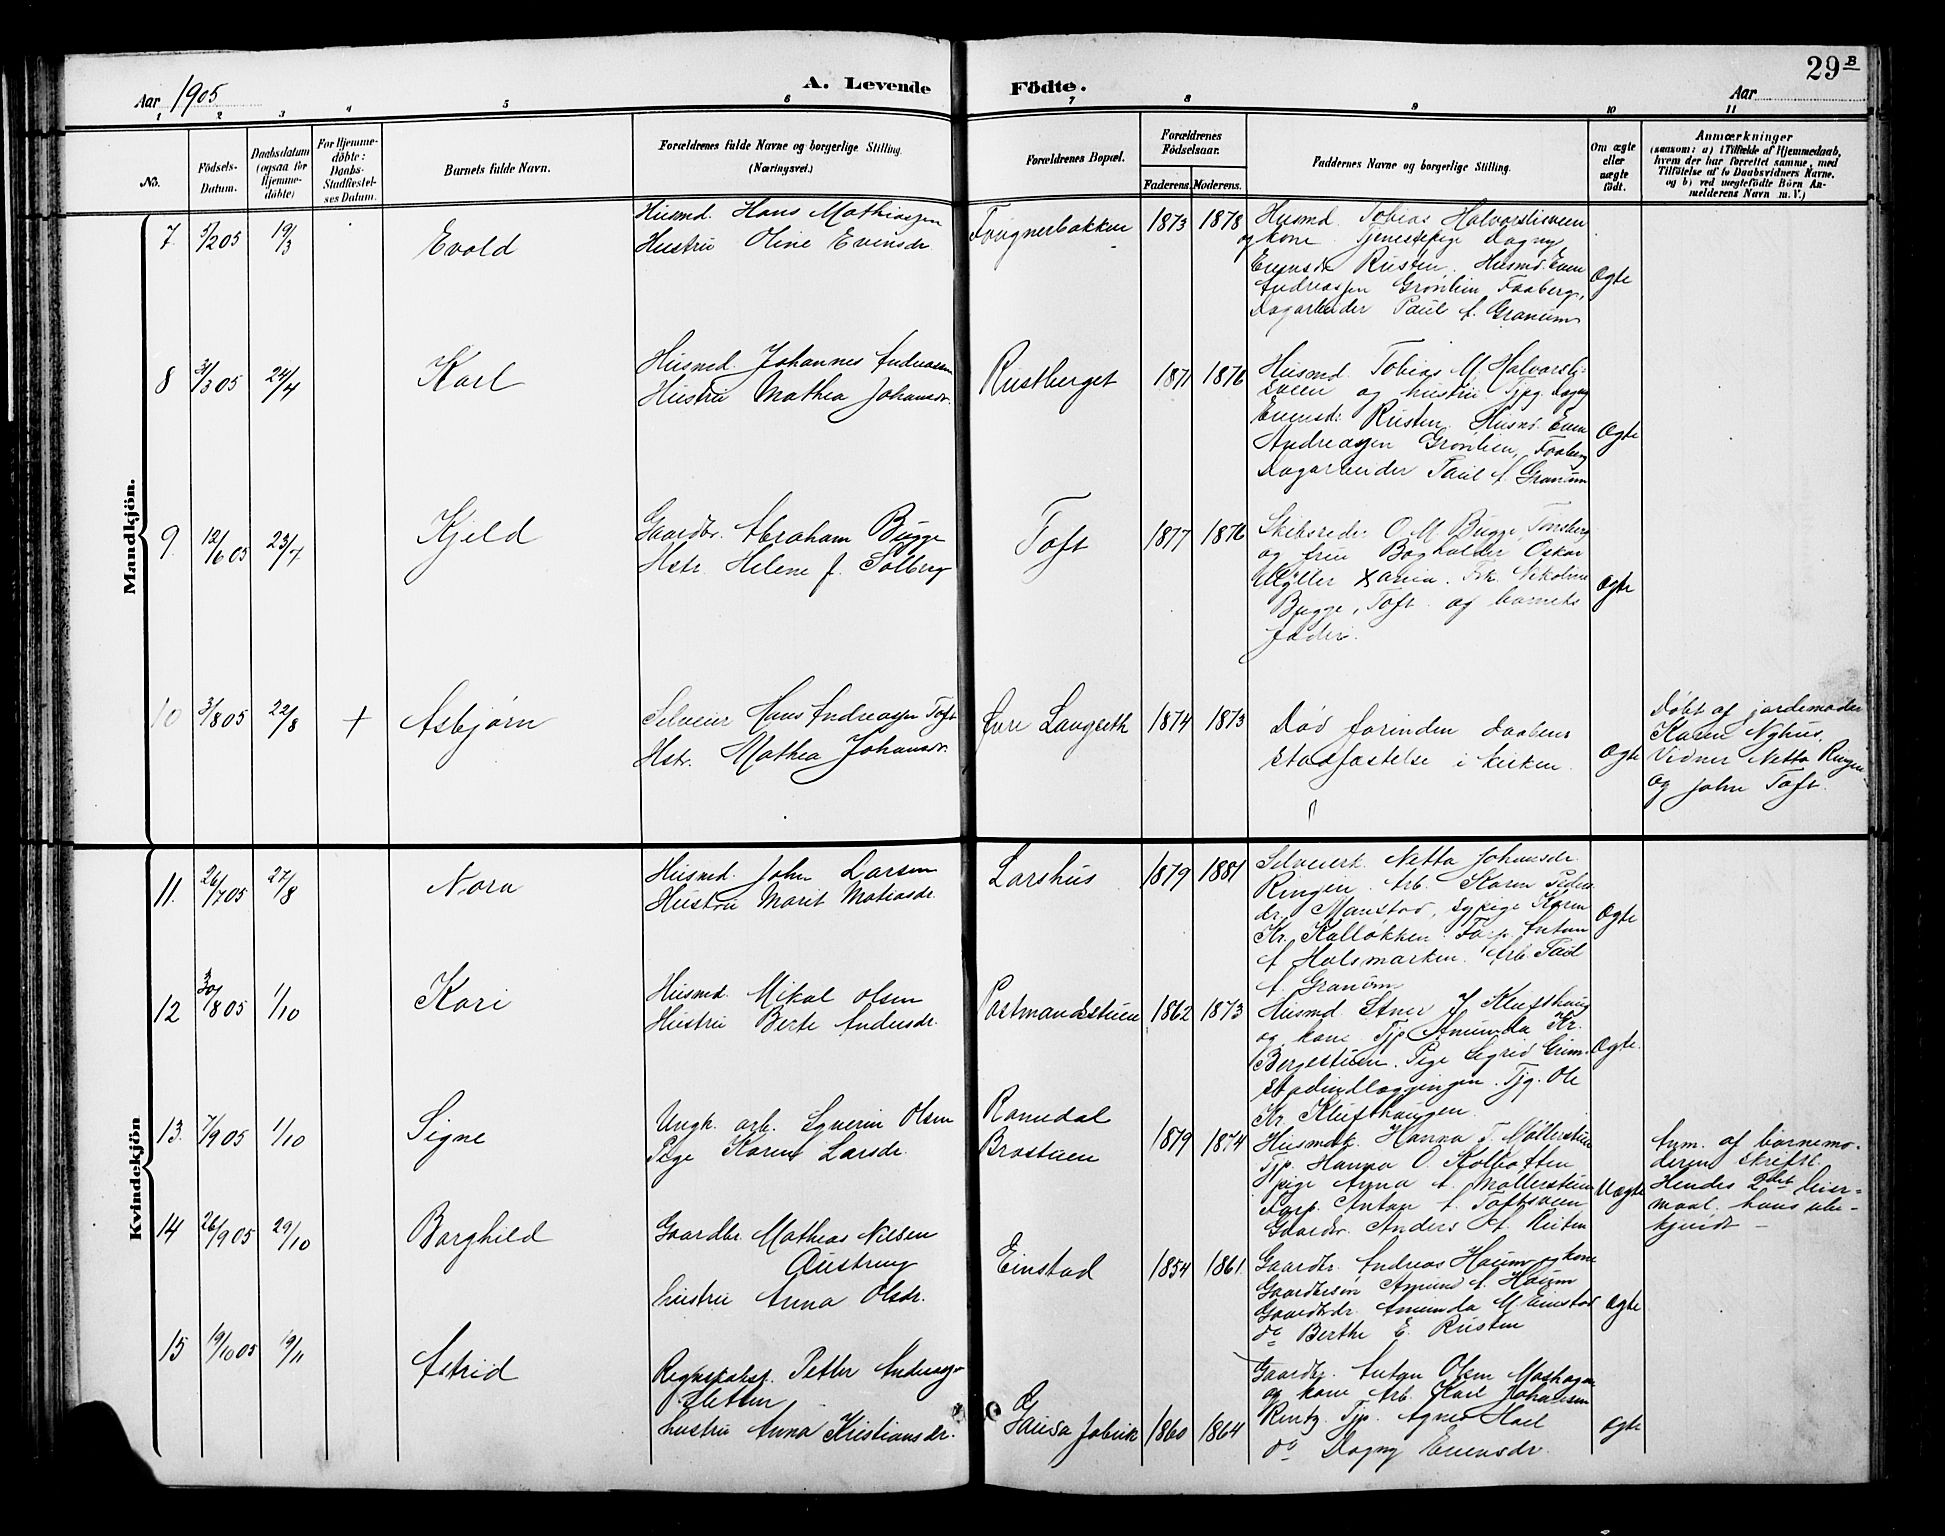 29 B
Aar 1905
A. Levende Födte.
Aar
1 2 3 4 5 6 7 8 9 10 11
No.
Födsels-Datum.
Daabsdatum (ogsaa for Hjemmedöbte)
For Hjemmedöbte: Daabs-Stadfæstelses Datum.
Barnets fulde Navn.
Forældrenes fulde Navne og borgerlige Stilling. (Næringsvei.)
Forældrenes Bopæl.
Forældrenes Födselsaar.
Faderens. Moderens.
Faddernes Navne og borgerlige Stilling.
Om ægte eller uægte födt.
Anmærkninger
(saasom: a) i Tilfælde af Hjemmedaab,
hvem der har forrettet samme, med
Tilföielse af to Daabsvidners Navne.
og b) ved uægtefödte Börn Anmelderens Navn m. V.)
Mandkjön.
7. 5/2 05 19/3 Evald
Husmd. Hans Mathiassen
Hustru Oline Evensdr.
1873 1878
Husmd. Tobias Halvorsliveen
og kone. Tjenestepige Dagny
Evensdr Rusten. Husmd. Even
Andreassen Grønlien Faaberg,
Dagarbeider Paul A. Granum
Ægte
8 31/3 05 24/4 Karl
Husmd. Johannes Andreassen
Hustru Mathea Johansdr.
Rustberget 1871 1876
Husmd. Tobias M. Halvorsli-
sveen og hustru Tjpg. Dagny
Evensd. Rusten. Husmd. Even
Andreassen Grønlien, Faaberg
Dagarbeider Paul A. Granum
Ægte
9. 12/6 05 23/7 Kjeld
Gaardbr. Abraham Bugge
Hstr. Helene f. Solberg
Toft 1877 1876
Skibsreder O. M. Bugge, Tønsberg
og frue Bogholder Oskar
Møller Xania. Frk. Nikoline
Bugge, Toft og barnets
fader.
Ægte
10 3/8 05 22/8 + Asbjørn
Selveier Hans Andreassen Toft
Hstr. Mathea Johansdr.
1874 1873
Død forinden daabens
stadfæstelse i kirken.
Ægte
Døbt af jordemoder
Karen Nyhus.
Vidner Netta Ringen
og John Toft.
Kvindekjön
11. 26/7 05 27/8 Nora
Husmd. John Larsen
Hustru Marit Matiasdr.
Larshus 1879 1881
Selveierk. Netta Johansdr.
Ringen. Arb. Karen Peders-
dr. Manstad, sypige Karen
Kr. Kalløkken. Farp. Anton
A. Holsmarken. Arb. Paul
A. Granum
Ægte
12 30/8 05 1/10 Kari
Husmd. Mikal Olsen
Hustru Berte Andersdr.
Postmandsstuen 1862 1873
Husmd Stner J. Klufthaug
og kone Tjp. Amunda Kr.
Bergestuen. Pige Sigrid Grim-
stadindlæggingen. Tjg. Ole
Kr. Klufthaugen.
Ægte.
13. 7/9 05 1/10 Signe
Ungk. arb. Syverin Olsen
Pige Karen Larsdr.
Romedal
Brostuen
1879 1874
Husmdk. Hanna T. Møllerstuen
Tjp. Hanna O. Kolbotten
pige Anna A. Møllerstuen
Farp. Anton A. Toftsveen
Gaardbr. Anders A. Rusten
Uægte
Anm. af barnemo-
deren skriftl.
Hendes 2det leier-
maal, hans ube-
kjendt –
14 26/9 05 29/10 Borghild
Gaardbr. Mathias Nilsen
Austreng
hustru Anna Olsdr.
Einstad 1854 1861.
Gaardbr. Andreas Haum og kone
Gaardbesøn Amund A. Haum
Gaardbdr. Amunda M. Einstad
do Berthe E. Rusten
Ægte
15 19/10 05 19/11 Astrid
Regnskabsf. Petter Andreass.
Sletten
hustru Anna Kristiansdr.
Gausa Jobruk 1860 1864
Gaardbr. Anton Olsen Moshagen
og kone Arb. Karl Johansen
Rentz. Tjp. Agnes Hoel
do Dagny Evensdr.
Ægte